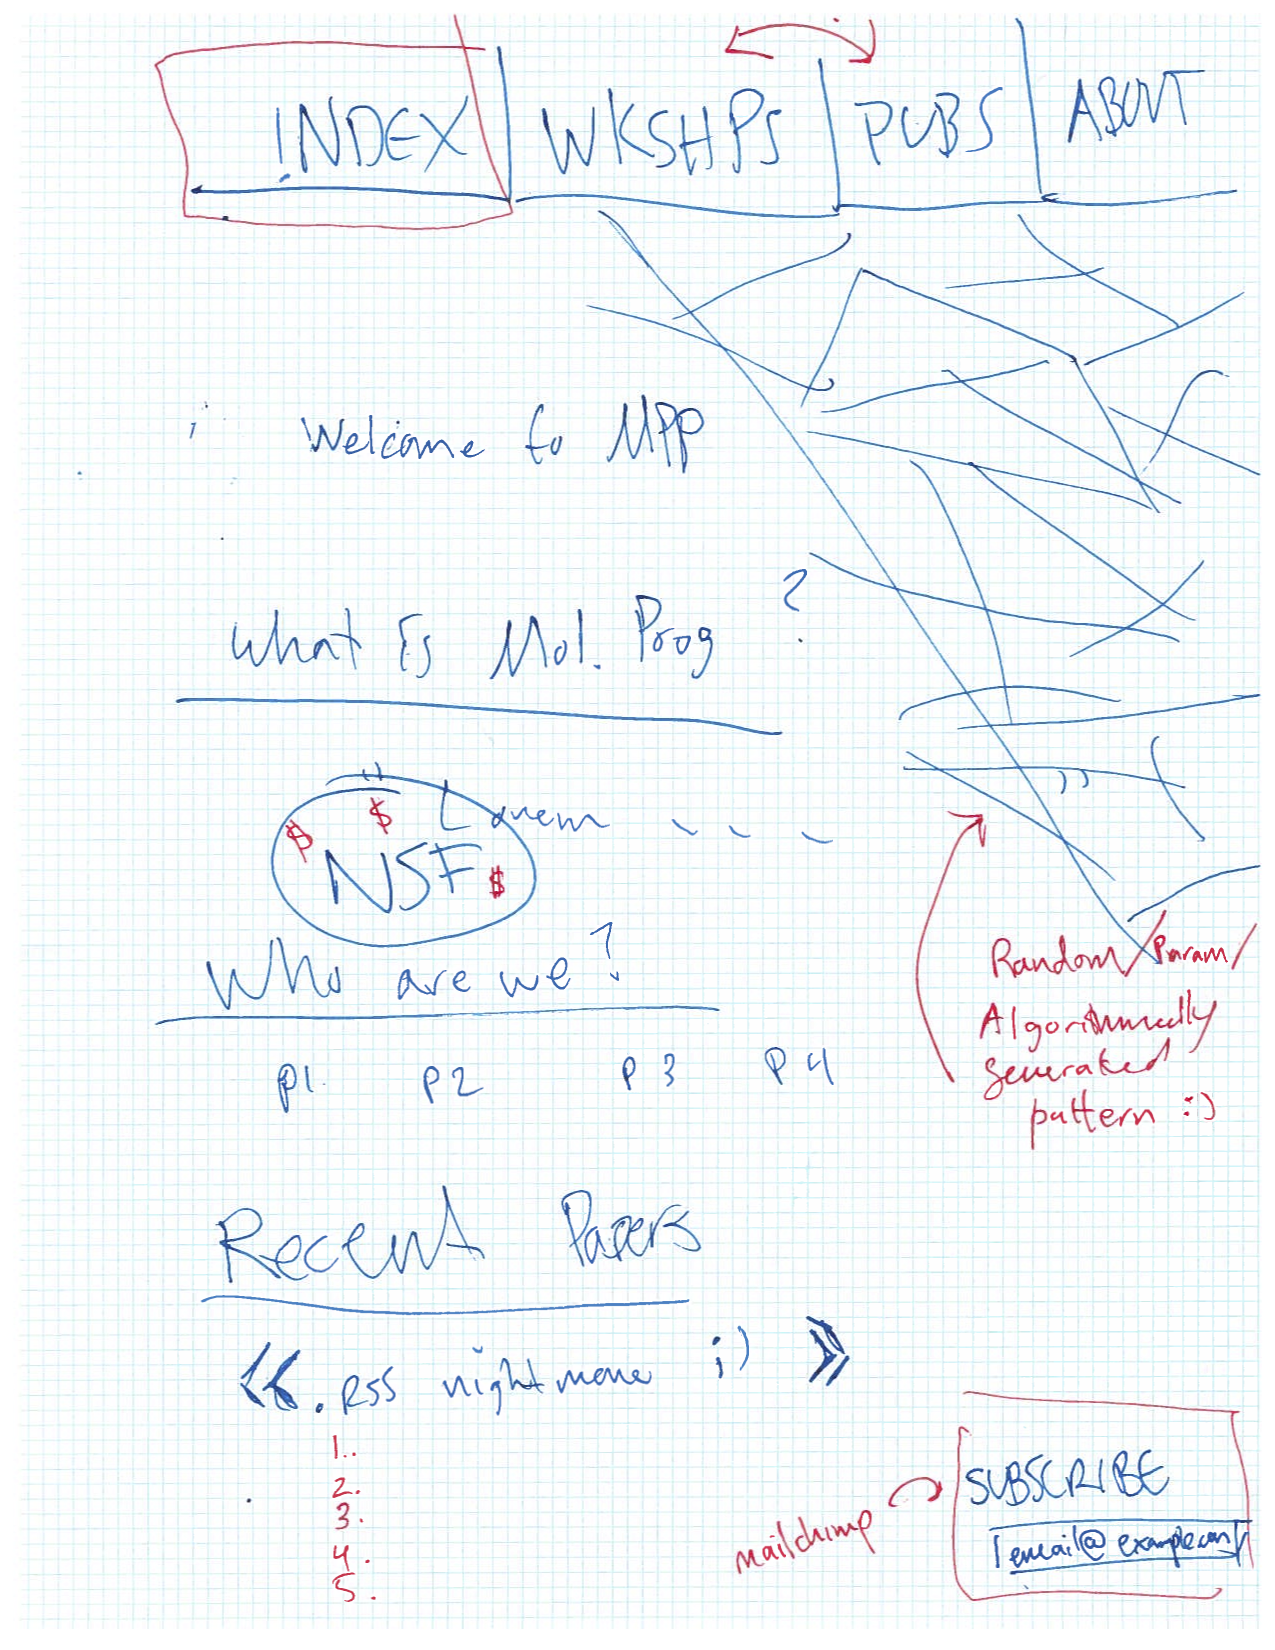 INDEX | WKSHPS | PUBS | ABOUT
Welcome to MPP
What is Mol. Prog ?
Lorem - - -
$ $ NSF $
Who are we?
P1 P2 P3 P4
Random/Param/
Algorithmically
generated
pattern :)
Recent Papers
<< . RSS nightmare ;) >>
1.
2.
3.
4.
5.
mailchimp
SUBSCRIBE
email@example.com